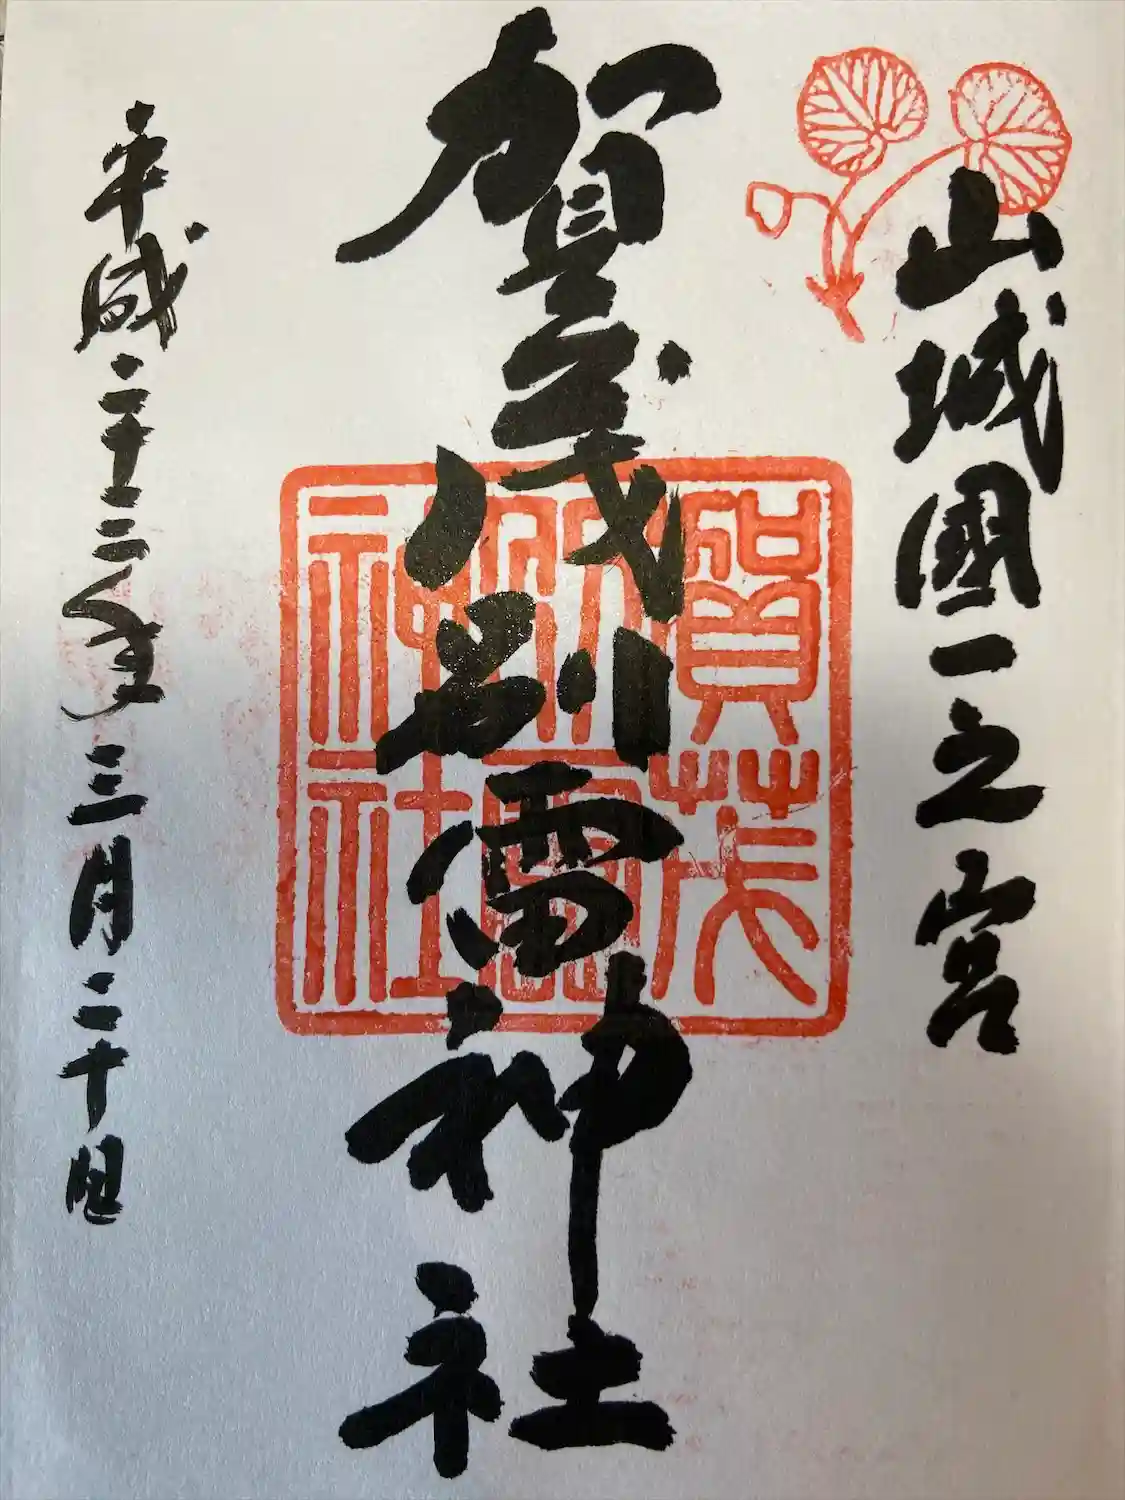 山城國一之宮
賀茂別雷神社
賀茂
別雷
神社
平成二十二年三月二十日